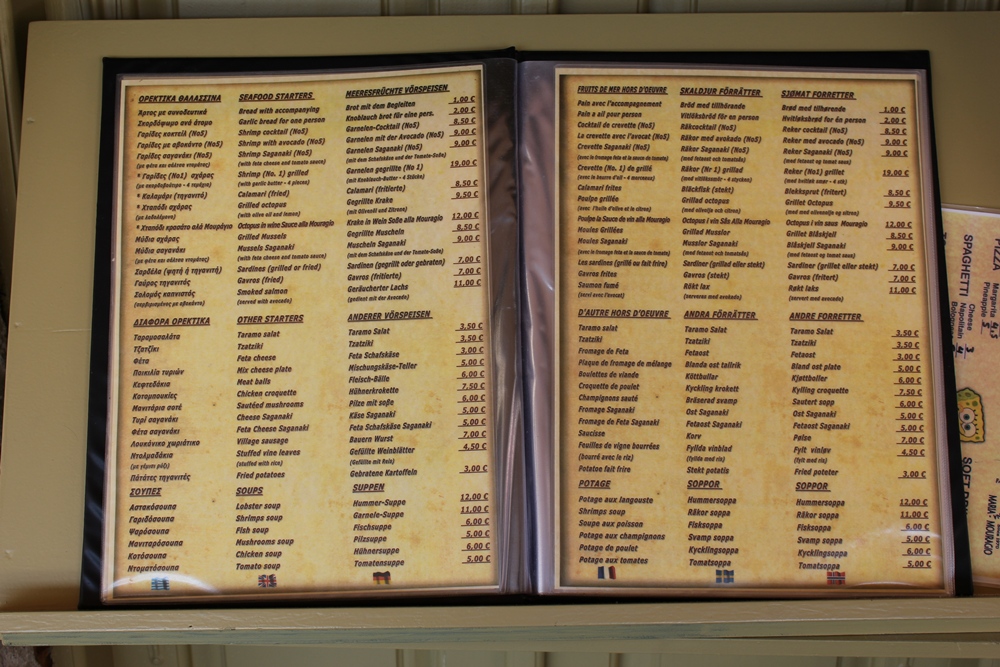 ΟΡΕΚΤΙΚΑ ΘΑΛΑΣΣΙΝΑ SEAFOOD STARTERS MEERESFRÜCHTE VÖRSPEISEN
Άρτος με συνοδευτικά Bread with accompanying Brot mit dem Begleiten 1,00 €
Σκορδόψωμο ανά άτομο Garlic bread for one person Knoblauch brot für eine pers. 2,00 €
Γαρίδες κοκτέιλ (No5) Shrimp cocktail (No5) Garnelen-Cocktail (No5) 8,50 €
Γαρίδες με αβοκάντο (No5) Shrimp with avocado (No5) Garnelen mit der Avocado (No5) 9,00 €
Γαρίδες σαγανάκι (No5) Shrimp Saganaki (No5) Garnelen Saganaki (No5) 9,00 €
(με φέτα και σάλτσα ντομάτας) (with feta cheese and tomato sauce) (mit dem Schafskäse und der Tomate-Soße)
* Γαρίδες (No1) σχάρας Shrimp (No. 1) grilled Garnelen gegrillte (No 1) 19,00 €
(με σκορδοβούτυρο - 4 τεμάχια) (with garlic butter - 4 pieces) (mit Knoblauch-Butter - 4 Stücke)
* Καλαμάρι (τηγανιτό) Calamari (fried) Calamari (fritierte) 8,50 €
* Χταπόδι σχάρας Grilled octopus Gegrillte Krake 9,50 €
(με λαδολέμονο) (with olive oil and lemon) (mit Olivenöl und Zitrone)
* Χταπόδι κρασάτο αλά Μουράγιο Octopus in wine Sauce alla Mouragio Krake in Wein Soße alla Mouragio 12,00 €
Μύδια σχάρας Grilled Mussels Gegrillte Muscheln 8,50 €
Μύδια σαγανάκι Mussels Saganaki Muscheln Saganaki 9,00 €
(με φέτα και σάλτσα ντομάτας) (with feta cheese and tomato sauce) (mit dem Schafskäse und der Tomate-Soße)
Σαρδέλα (ψητή ή τηγανιτή) Sardines (grilled or fried) Sardinen (gegrillt oder gebraten) 7,00 €
Γαύρος τηγανιτός Gavros (fried) Gavros (fritierte) 7,00 €
Σολομός καπνιστός Smoked salmon Geräucherter Lachs 11,00 €
(σερβιρισμένος με αβοκάντο) (served with avocado) (gedient mit der Avocado)
ΔΙΑΦΟΡΑ ΟΡΕΚΤΙΚΑ OTHER STARTERS ANDERER VÖRSPEISEN
Ταραμοσαλάτα Taramo salat Taramo Salat 3,50 €
Τζατζίκι Tzatziki Tzatziki 3,50 €
Φέτα Feta cheese Feta Schafskäse 3,00 €
Ποικιλία τυριών Mix cheese plate Mischungskäse-Teller 5,00 €
Κεφτεδάκια Meat balls Fleisch-Bälle 6,00 €
Κοτομπουκιές Chicken croquette Hühnerkrokette 7,50 €
Μανιτάρια σοτέ Sautéed mushrooms Pilze mit soße 6,00 €
Τυρί σαγανάκι Cheese Saganaki Käse Saganaki 5,00 €
Φέτα σαγανάκι Feta Cheese Saganaki Feta Schafskäse Saganaki 5,00 €
Λουκάνικο χωριάτικο Village sausage Bauern Wurst 7,00 €
Ντολμαδάκια Stuffed vine leaves Gefüllte Weinblätter 4,50 €
(με γέμιση ρύζι) (stuffed with rice) (Gefüllte mit Reis)
Πατάτες τηγανιτές Fried potatoes Gebratene Kartoffeln 3,00 €
ΣΟΥΠΕΣ SOUPS SUPPEN
Αστακόσουπα Lobster soup Hummer-Suppe 12,00 €
Γαριδόσουπα Shrimps soup Garnele-Suppe 11,00 €
Ψαρόσουπα Fish soup Fischsuppe 6,00 €
Μανιταρόσουπα Mushrooms soup Pilzsuppe 5,00 €
Κοτόσουπα Chicken soup Hühnersuppe 6,00 €
Ντοματόσουπα Tomato soup Tomatensuppe 5,00 €
FRUITS DE MER HORS D'OEUVRE SKALDJUR FÖRRÄTTER SJØMAT FORRETTER
Pain avec l'accompagnement Bröd med tillbörande Brød med tilhørende 1,00 €
Pain a ail pour person Vitlöksbröd för en person Hvitløksbrød for én person 2,00 €
Cocktail de crevette (No5) Räkcocktail (No5) Reker cocktail (No5) 8,50 €
La crevette avec l'avocat (No5) Räkor med avokado (No5) Reker med avocado (No5) 9,00 €
Crevette Saganaki (No5) Räkor Saganaki (No5) Reker Saganaki (No5) 9,00 €
(avec le fromage feta et la sauce de tomate) (med fetaost och tomatsås) (med fetaost og tomat saus)
Crevette (No. 1) de grillé Räkor (Nr 1) grillad Reker (No1) grillet 19,00 €
(avec le beurre d'ail - 4 morceaux) (med vitlökssmör - 4 stycken) (med hvitløk smør - 4 stk)
Calamari frites Bläckfisk (stekt) Blekksprut (fritert) 8,50 €
Poulpe grillée Grillad octopus Grillet Octopus 9,50 €
(avec l'huile d'olive et le citron) (med olivolje och citron) (med med olivenolje og sitron)
Poulpe la Sauce de vin alla Mouragio Octopus i vin Sås alla Mouragio Octopus i vin saus Mouragio 12,00 €
Moules Grillées Grillad Musslor Grillet Blåskjell 8,50 €
Moules Saganaki Musslor Saganaki Blåskjell Saganaki 9,00 €
(avec le fromage feta et la sauce de tomate) (med fetaost och tomatsås) (med fetaost og tomat saus)
Les sardines (grillé ou fait frire) Sardiner (grillad eller stekt) Sardiner (grillet eller stekt) 7,00 €
Gavros frites Gavros (stekt) Gavros (fritert) 7,00 €
Saumon fumé Rökt lax Røkt laks 11,00 €
(servi avec l'avocat) (serveras med avokado) (servert med avocado)
D'AUTRE HORS D'OEUVRE ANDRA FÖRRÄTTER ANDRE FORRETTER
Taramo salat Taramo Salat Taramo Salat 3,50 €
Tzatziki Tzatziki Tzatziki 3,50 €
Fromage de Feta Fetaost Fetaost 3,00 €
Plaque de fromage de mélange Blanda ost tallrik Bland ost plate 5,00 €
Boulettes de viande Köttbullar Kjøttboller 6,00 €
Croquette de poulet Kyckling krokett Kylling croquette 7,50 €
Champignons sauté Bräserad svamp Sautert sopp 6,00 €
Fromage Saganaki Ost Saganaki Ost Saganaki 5,00 €
Fromage de Feta Saganaki Fetaost Saganaki Fetaost Saganaki 5,00 €
Saucisse Korv Pølse 7,00 €
Feuilles de vigne bourrées Fyllda vinblad Fylt vinløv 4,50 €
(bourré avec le riz) (fyllda med ris) (fylt med ris)
Potatoe fait frire Stekt potatis Fried poteter 3,00 €
POTAGE SOPPOR SOPPOR
Potage aux langouste Hummersoppa Hummersoppa 12,00 €
Shrimps soup Räkor soppa Räkor soppa 11,00 €
Soupe aux poisson Fisksoppa Fisksoppa 6,00 €
Potage aux champignons Svamp soppa Svamp soppa 5,00 €
Potage de poulet Kycklingsoppa Kycklingsoppa 6,00 €
Potage aux tomates Tomatsoppa Tomatsoppa 5,00 €
PIZZA
Margarita 4,5
Pineapple 5
SPAGHETTI
Cheese 3
Napolitain 4
MOURAGIO